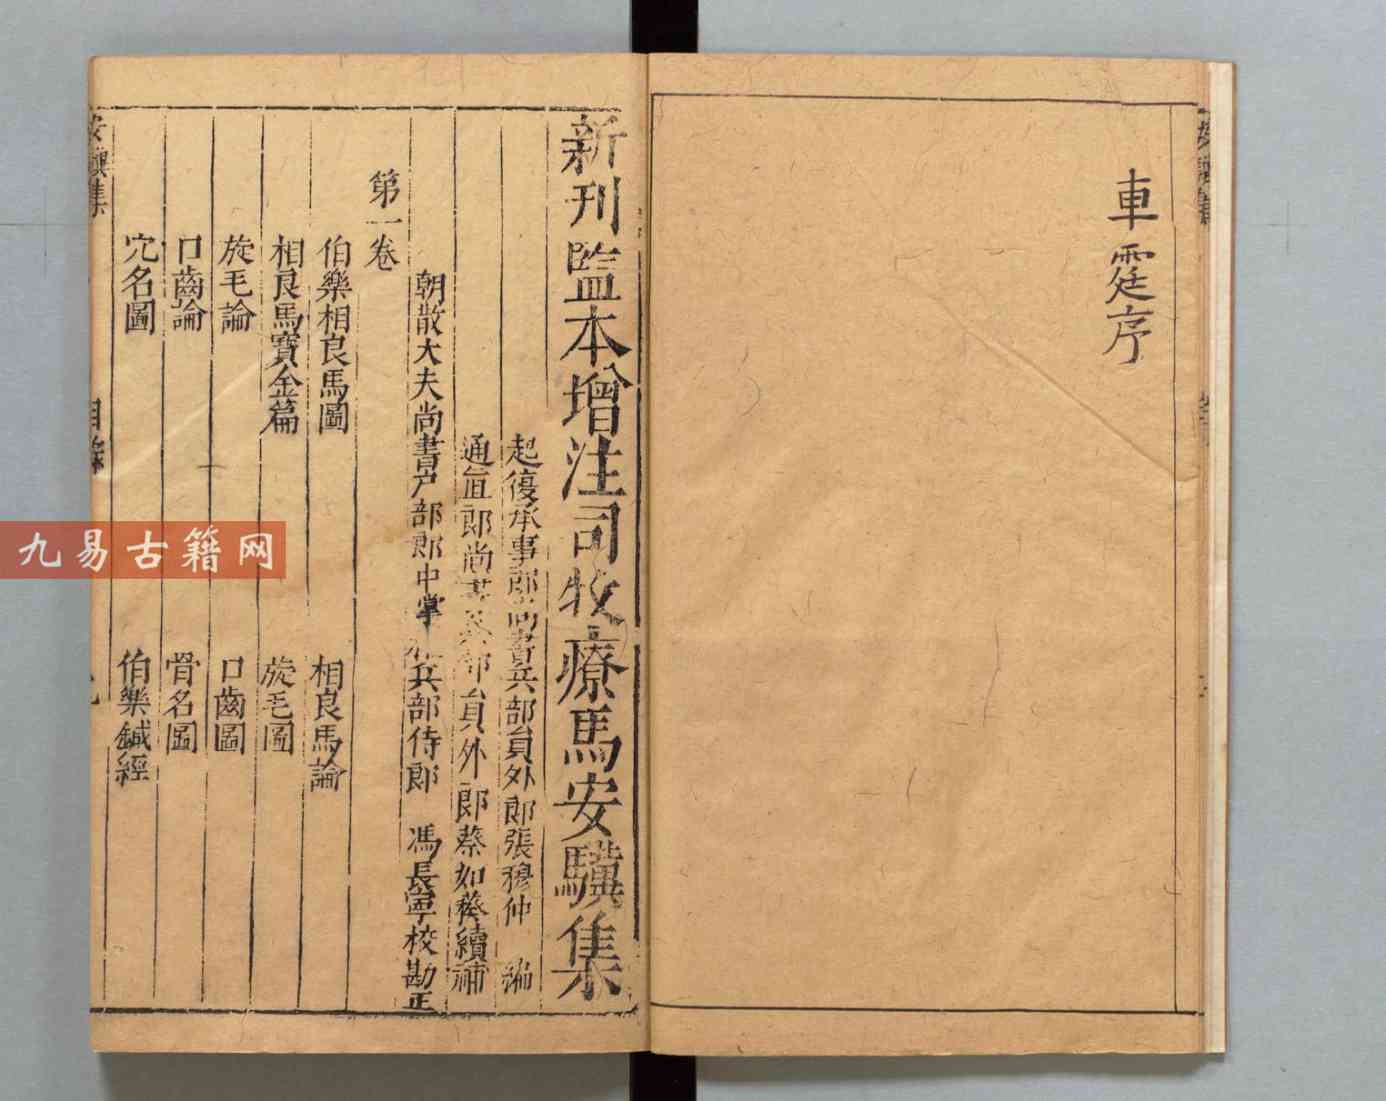 車霆序
新刊監本增注司牧療馬安驥集
起復承事郎尚書兵部員外郎張穆仲 編
通直郎尚書兵部員外郎蔡如葵續補
朝散大夫尚書户部郎中掌 兵部侍郎 馮長寧校勘正
第一卷
伯樂相良馬圖 相良馬論
相良馬寶金篇 旋毛圖
旋毛論 口齒圖
口齒論 骨名圖
穴名圖 伯樂鍼經
安驥集 目錄
九易古籍网